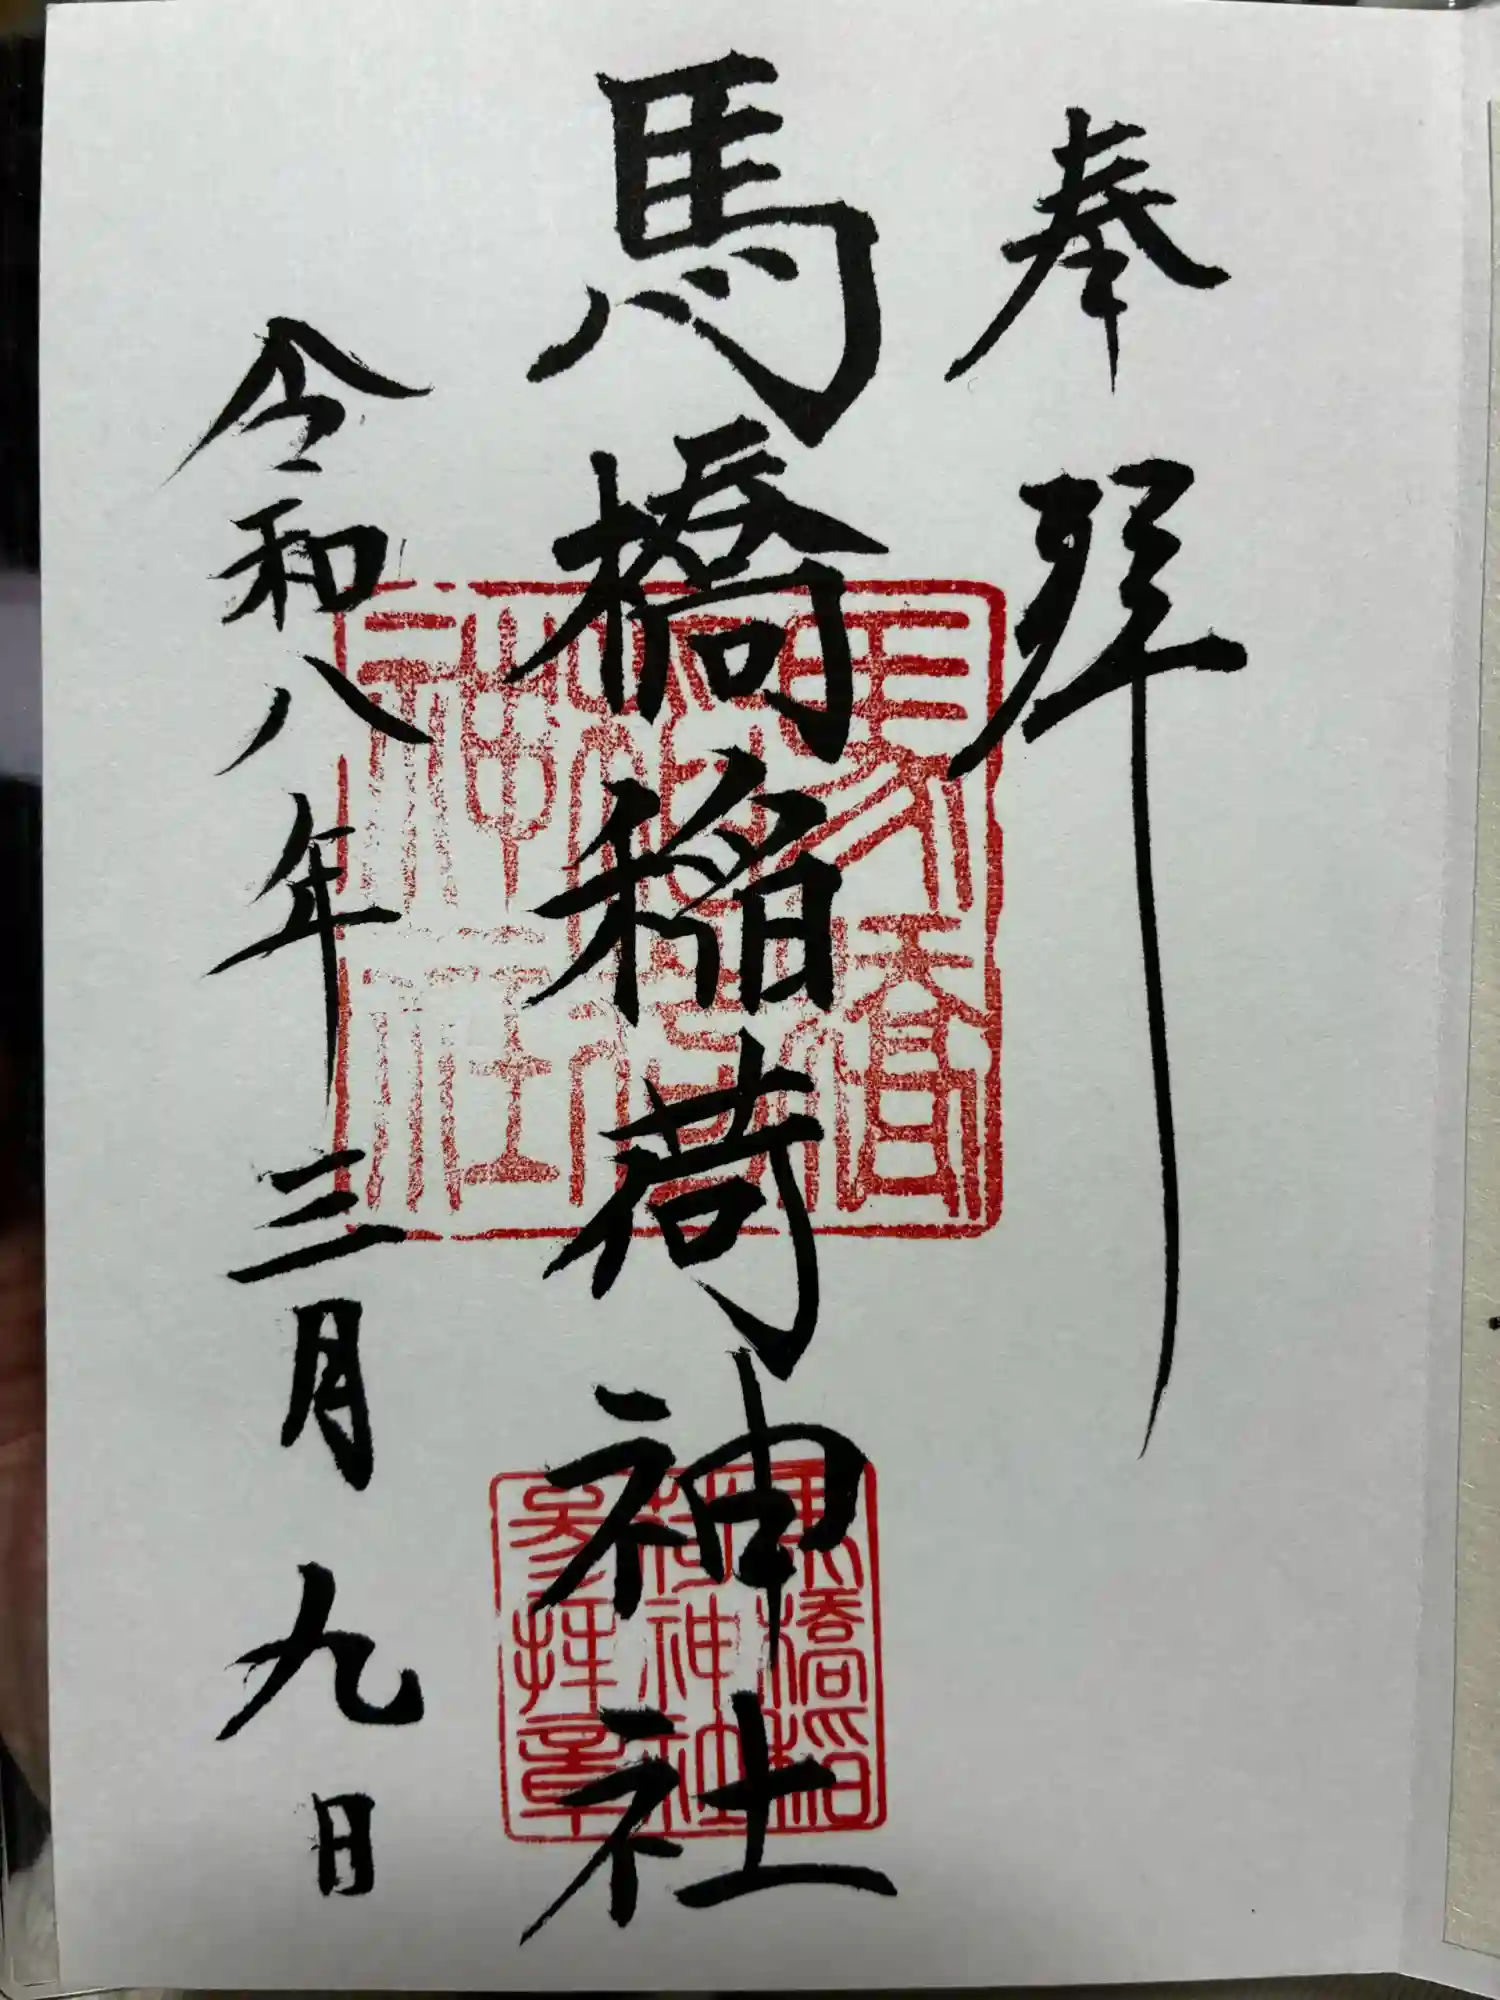 奉拝
馬橋稲荷神社
令和八年三月九日
馬橋
稲荷
神社
馬橋稲
荷神社
参拝章